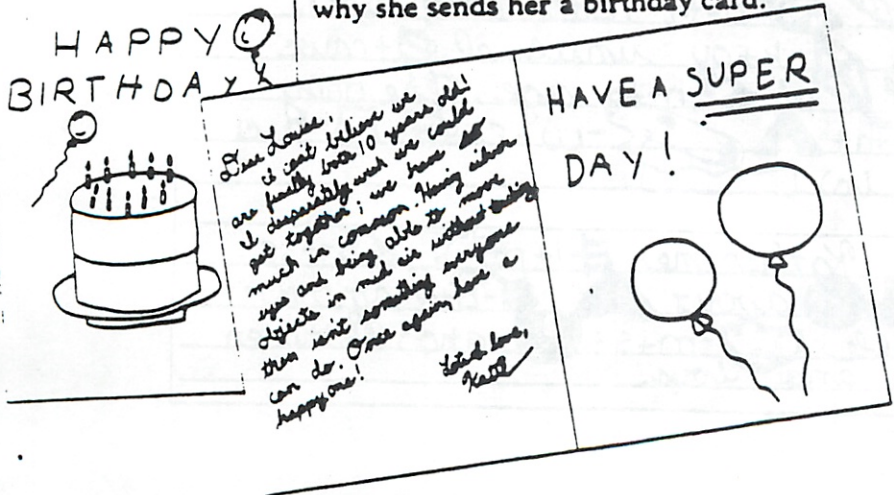 why she sends her a birthday card.
HAPPY
BIRTHDAY
Dear Louise,
I can't believe we
are finally both 10 years old!
I desparately wish we could
out together; we have so
much in common. Having silver
eyes and being able to move
objects in mid air without touching
them isn't something everyone
can do. Once again, have a
happy one!
Lots of love,
Katie
HAVE A SUPER
DAY!